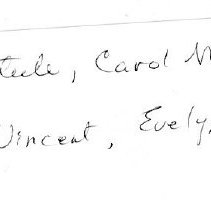 Steele, Carol M
Vincent, Evely